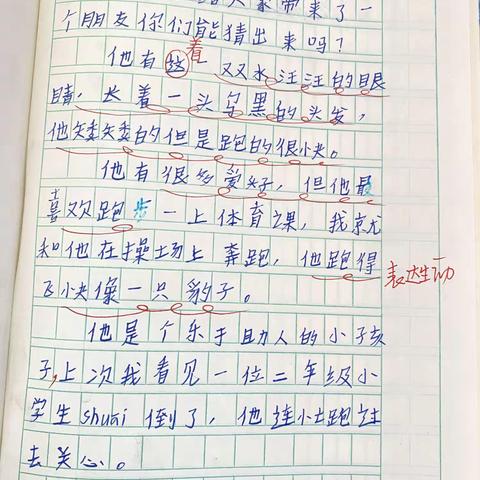 大家带来了一
个朋友你们能猜出来吗？
着
他有这 双水汪汪的眼
睛，长着一头乌黑的头发，
他矮矮的但是跑的很快。
他有很多爱好，但他最
喜欢跑步一上体育课，我就
和他在操场上奔跑，他跑得
飞快像一只豹子。
表达生动
他是个乐于助人的小孩
子，上次我看见一位二年级小
学生shuai倒了，他连忙跑过
去关心。